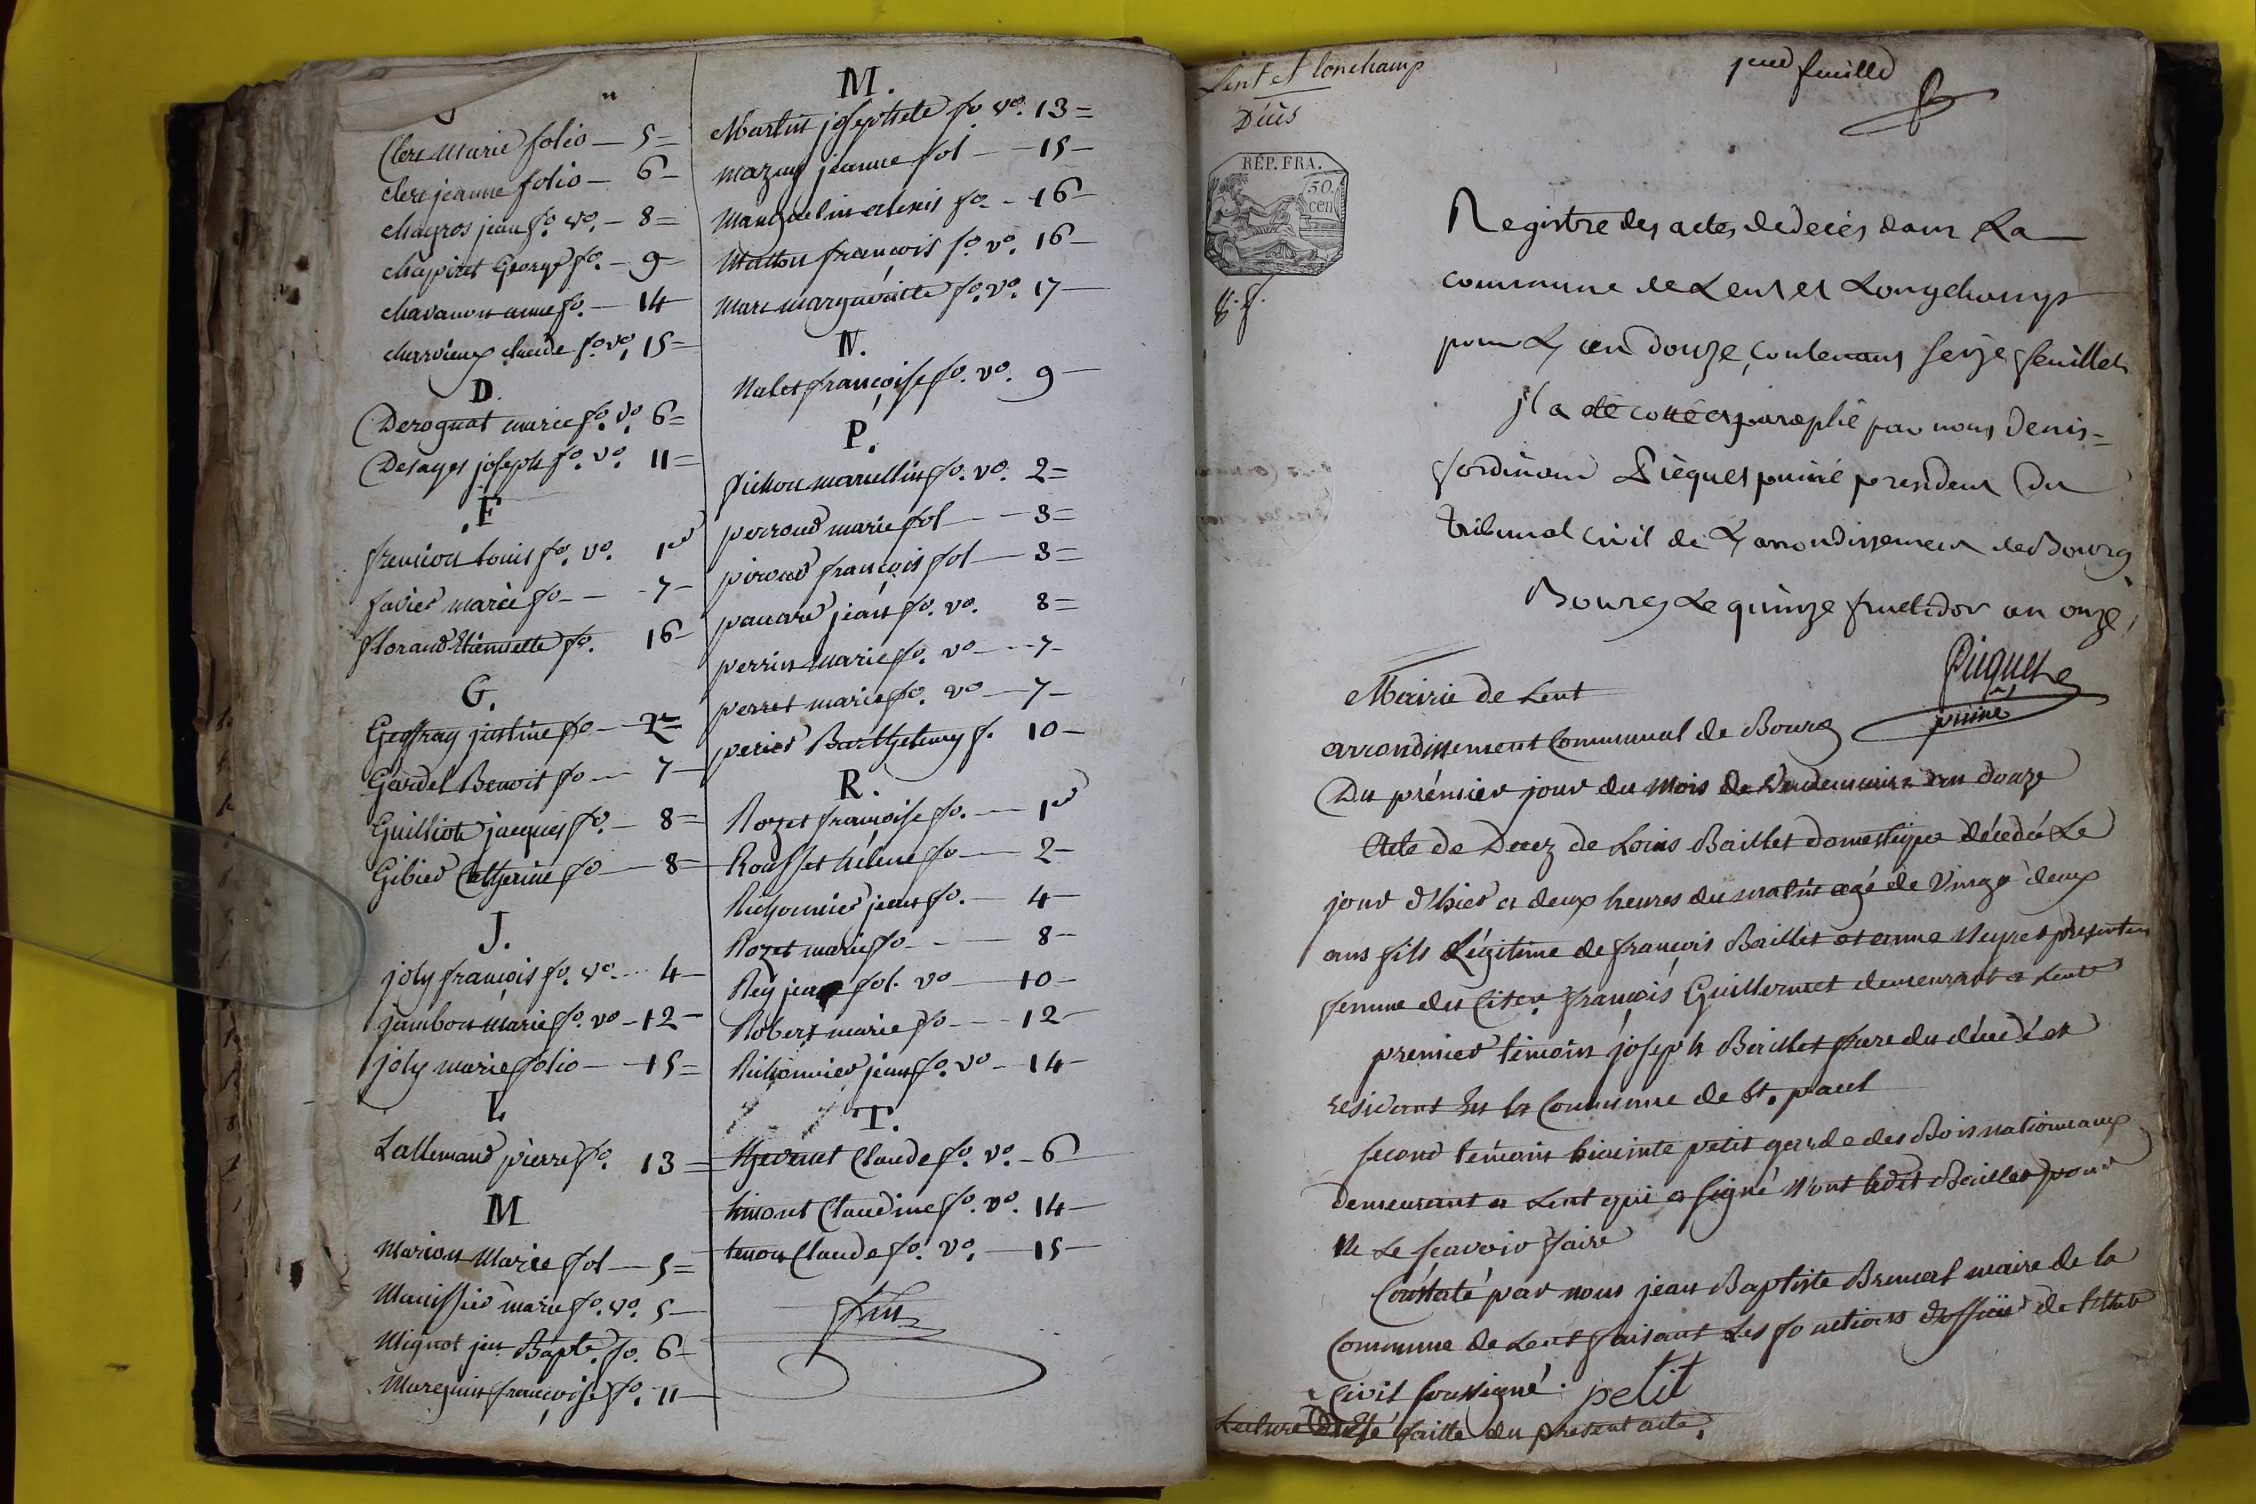 Clerc Marie folio — 5 =
clerc jeanne folio — 6 —
chagros jean fo. vo. — 8 =
chapiret George fo. — 9 —
chavanon anne fo. — 14
charvieux claude fo. vo. 15 =
D.
Derognat marie fo. vo. 6 =
Desayes joseph fo. vo. 11 =
F
frencion Louis fo. vo. 1er
favier marie fo — 7 —
florand Etiennette fo. 16
G.
Geoffray justine fo — 2 =
Gardel Benoit fo — 7
Guilliote jacques fo. — 8 =
Gibier Catherine fo — 8
J.
joly françois fo. vo. 4
jambon marie fo. vo — 12
joly marie folio — 15 =
L
Lallemand pierre fo. 13 =
M
Marion Marie fol — 5 =
Manissier marie fo. vo. 5 —
Mignot jean Bapte. fo. 6 —
Marequin françoise fo. 11 —
M.
Martin josephete fo. vo. 13 =
mazuy jeanne fol — 15 —
Manguelin alexis fo. — 16 —
Matton françois fo. vo. 16 —
Marc marguerite fo. vo. 17 —
N.
Nalet françoise fo. vo. 9 —
P.
pichon marcellin fo. vo. 2 =
perroud marie fol — 3 =
piroud françois fol — 3 =
paccard jean fo. vo. 8 =
perrin marie fo. vo — 7 —
perret marie fo. vo — 7 —
perier Barthelemy f. 10 —
R.
Rozet françoise fo. — 1er
Rousset hélène fo — 2 —
Richonnier jean fo. — 4 —
Rozet marie fo — 8 —
Rey jean fol. vo — 10 —
Robert marie fo — 12 —
Richonnier jean fo. vo — 14 —
T.
thevenet Claude fo. vo. — 6
timont Claudine fo. vo. 14 —
tenon Claude fo. vo. — 15 —
fin
Lent et lonchamp
Décès
1ere feuille
RÉP. FRA.
50.
cen
Registre des actes de deces dans La
commune de Lent et Longchamp
pour L'an douze, contenant seize feuillets
jl a été cotté et paraphé par nous Denis =
ferdinand Picquet puiné president du
tribunal Civil de L'arrondissement de Bourg
Bourg Le quinze fructidor an onze,
Picquet
puiné
Mairie de Lent
arrondissement Communal de Bourg
Du prémier jour du mois de Vendemiaire an douze
Acte de Decez de Louis Baillet domestique décedé Le
jour d'hier a deux heures du matin agé de Vingt deux
ans fils Légitime de françois Baillet et anne Neyret presenten
femme du Citen. françois Guillermet demeurant a Lent
premier témoin joseph Baillet frere du décedé et
residant en la Commune de St. paul
second témoin hiacinte petit garde des Bois nationnaux
demeurant a Lent qui a signé Non ledit Baillet pour
ne Le scavoir faire
Constaté par nous jean Baptiste Brunet maire de la
Commune de Lent faisant Les fonctions d'officier de l'état
Civil soussigné. petit
Lecture faitte du present acte.